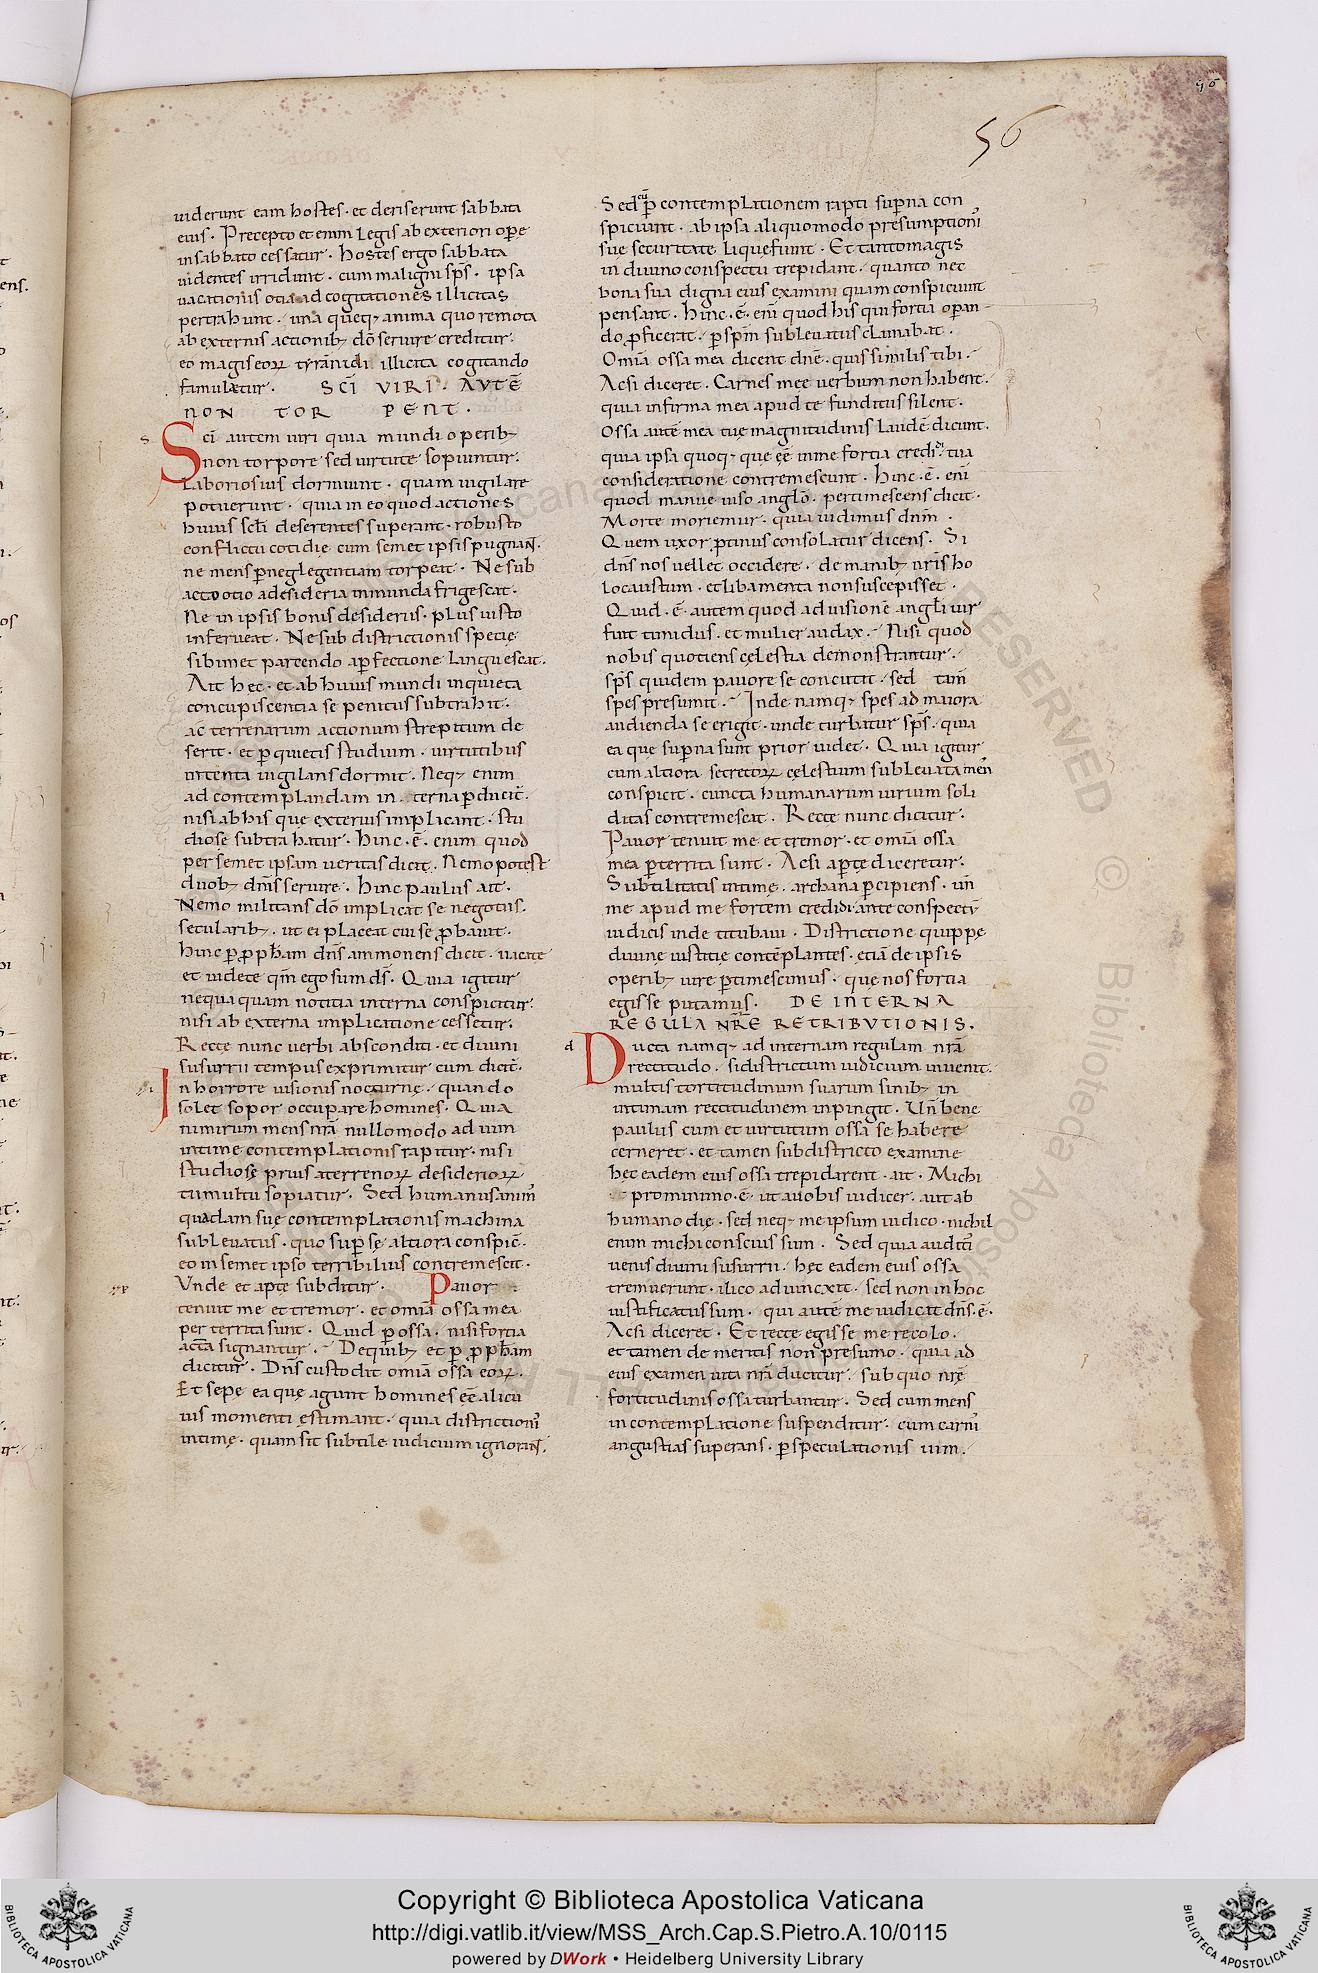 56
56
uiderunt eam hostes · et deriserunt sabbata
eius · Precepto et enim legis ab exteriori op̄e
in sabbato cessatur · hostes ergo sabbata
uidentes irridunt · cum maligni sp̄s · ipsa
uacationis otia ad cogitationes illicitas
pertrahunt · una queq; anima quo remota
ab externis actionib; dō seruire creditur ·
eo magis eorꝝ tyrānidi illicita cogitando
famulætur · SC̄I VIRI · AVTĒ
NON TOR PENT ·
s Scī autem uiri quia mundi operib;
non torpore sed uirtute sopiuntur ·
laboriosius dormiunt · quam uigilare
potuerunt · quia in eo quod actiones
huius sc̄li deserentes superant · robusto
conflictu cotidie cum semet ipsis pugnañ ·
ne mens p̄ neglegentiam torpeat · Ne sub
acto otio ad desideria inmunda frigescat ·
Ne in ipsis bonis desideriis · plus iusto
inferueat · Ne sub districtionis specie
sibimet parcendo a p̄fectione languescat ·
Ait hec · et ab huius mundi inquieta
concupiscentia se penitus subtrahit ·
ac terrenarum actionum strepitum de
serit · et p̄ quietis studium · uirtutibus
intenta uigilans dormit · Neq; enim
ad contemplandam in terna p̄ducit̄ ·
nisi ab his que exterius implicant · stu
diose subtrahatur · hinc · ē · enim quod
per semet ipsam ueritas dicit · Nemo potest
duob; dn̄is seruire · hinc paulus ait ·
Nemo militans dō implicat se negotiis ·
secularib; · ut ei placeat cui se p̄bauit ·
hinc p̄ p̄ph̄am dn̄s ammonens dicit · uacate
et uidete qm̄ ego sum ds̄ · Quia igitur
nequaquam notitia interna conspicitur ·
nisi ab externa implicatione cessetur ·
Recte nunc uerbi absconditi · et diuini
susurrii tempus exprimitur cum dicit̄ ·
i In horrore uisionis nocturnę · quando
solet sopor occupare homines · Quia
nimirum mens nr̄a nullomodo ad uim
intime contemplationis rapitur · nisi
studiosę prius a terrenorꝝ desideriorꝝ
tumultu sopiatur · Sed humanus anim᾽
quadam sue contemplationis machina
subleuatus · quo sup̄ sę altiora conspic̄ ·
eo in semet ipso terribilius contremescit ·
Vnde et apte subditur · Pauor
p tenuit me et tremor · et omīa ossa mea
per territa sunt · Quid p̄ ossa · nisi fortia
acta signantur · De quib; et p̄ p̄ph̄am
dicitur · Dn̄s custodit omīa ossa eorꝝ ·
Et sepe ea que agunt homines eē alicu
ius momenti ęstimant · quia districtionī
intimę · quam sit subtile iudicium ignorañ ·
Sed cū p̄ contemplationem rapti sup̄na con
spiciunt · ab ipsa aliquomodo presumptionī
sue securitate liquefiunt · Et tantomagis
in diuino conspectu trepidant · quanto nec
bona sua digna eius examini quam conspiciunt
pensant · hinc · ē · enī quod his qui fortia op̄an
do p̄ficerat · p̄ sp̄m subleuatus clamabat ·
Omīa ossa mea dicent dn̄e · quis similis tibi ·
Acsi diceret · Carnes mee uerbum non habent ·
quia infirma mea apud te funditus silent ·
Ossa autē mea tuę magnitudinis laudē dicunt ·
quia ipsa quoq; que eē in me fortia credidi · tua
consideratione contremescunt · hinc · ē · enī
quod manue uiso anglo · pertimescens dicit ·
Morte moriemur · quia uidimus dn̄m ·
Quem uxor p̄tinus consolatur dicens · Si
dn̄s nos uellet occidere · de manib; nr̄is ho
locaustum · et libamenta non suscepisset ·
Quid · ē · autem quod ad uisionē angl̄i uir
fuit timidus · et mulier audax · Nisi quod
nobis quotiens cęlestia demonstrantur ·
sp̄s quidem pauore se concutit · sed tam̄
spes presumit · Inde namq; spes ad maiora
audienda se erigit · unde turbatur sp̄s · quia
ea que sup̄na sunt prior uidet · Quia igitur
cum altiora secretorꝝ cęlestium subleuata men᾽
conspicit · cuncta humanarum uirium soli
ditas contremescat · Recte nunc dicitur ·
Pauor tenuit me et tremor · et omīa ossa
mea p̄territa sunt · Acsi ap̄te diceretur ·
Subtilitatis intime · archana p̄cipiens · un̄
me apud me fortem credidi ante conspectū
iudicis inde titubaui · Districtione quippe
diuine iustitię contēplantes · etiā de ipsis
operib; iure p̄timescimus · que nos fortia
egisse putamus · DE INTERNA
REGULA NR̄E RETRIBVTIONIS ·
d Ducta namq; ad internam regulam nr̄a
rectitudo · si districtum iudicium inuenit ·
multis tortitudinum suarum sinib; in
intimam rectitudinem inpingit · Un̄ bene
paulus cum et uirtutum ossa se habere
cerneret · et tamen sub districto examine
hęc eadem eius ossa trepidarent · ait · Michi
pro minimo · ē · ut a uobis iudicer · aut ab
humano die · sed neq; me ipsum iudico · nichil
enim michi conscius sum · Sed quia auditī
uenis diuini susurrii · hęc eadem eius ossa
tremuerunt · ilico adiuncxit · sed non in hoc
iustificatus sum · qui autē me iudicat dn̄s · ē ·
Acsi diceret · Et recte egisse me recolo ·
et tamen de meritis non presumo · quia ad
eius examen uita nr̄a ducitur · sub quo nr̄ę
fortitudinis ossa turbantur · Sed cum mens
in contemplatione suspenditur · cum carnī
angustias superans · p̄ speculationis uim ·
Copyright © Biblioteca Apostolica Vaticana
http://digi.vatlib.it/view/MSS_Arch.Cap.S.Pietro.A.10/0115
powered by DWork • Heidelberg University Library